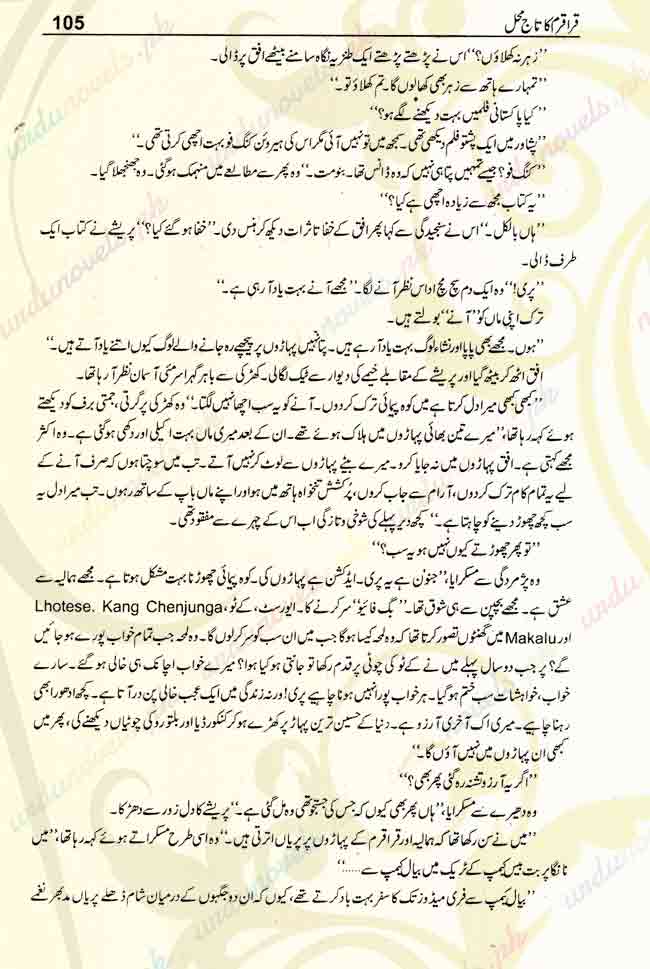 105 قراقرم کا تاج محل
’’زہر نہ کھلاؤں؟‘‘ اس نے پڑھتے پڑھتے ایک طنزیہ نگاہ سامنے بیٹھے افق پر ڈالی۔
’’تمہارے ہاتھ سے زہر بھی کھا لوں گا۔ تم کھلاؤ تو۔‘‘
’’کیا پاکستانی فلمیں بہت دیکھنے لگے ہو؟‘‘
’’پشاور میں ایک پشتو فلم دیکھی تھی۔ سمجھ میں تو نہیں آئی مگر اس کی ہیروئن کنگ فو بہت اچھی کرتی تھی۔‘‘
’’کنگ فو؟ جیسے تمہیں پتا ہی نہیں کہ وہ ڈانس تھا۔ بنومت۔‘‘ وہ پھر سے مطالعے میں منہمک ہو گئی۔ وہ جھنجھلا گیا۔
’’یہ کتاب مجھ سے زیادہ اچھی ہے کیا؟‘‘
’’ہاں بالکل۔‘‘ اس نے سنجیدگی سے کہا پھر افق کے خفا تاثرات دیکھ کر ہنس دی۔ ’’خفا ہو گئے کیا؟‘‘ پریشے نے کتاب ایک
طرف ڈالی۔
’’پری!‘‘ وہ ایک دم سچ مچ اداس نظر آنے لگا۔ ’’مجھے آنے بہت یاد آ رہی ہے۔‘‘
ترک اپنی ماں کو ’’آنے‘‘ بولتے ہیں۔
’’ہوں۔ مجھے بھی پاپا اور نشاء لوگ بہت یاد آ رہے ہیں۔ پتا نہیں پہاڑوں پر پیچھے رہ جانے والے لوگ کیوں اتنے یاد آتے ہیں۔‘‘
افق اٹھ کر بیٹھ گیا اور پریشے کے مقابلے خیمے کی دیوار سے ٹیک لگا لی۔ کھڑکی سے باہر گہرا سرمئی آسمان نظر آ رہا تھا۔
’’کبھی کبھی میرا دل کرتا ہے میں کوہ پیمائی ترک کر دوں۔ آنے کو یہ سب اچھا نہیں لگتا۔‘‘ وہ کھڑکی پر گرتی، جمتی برف کو دیکھتے
ہوئے کہہ رہا تھا، ’’میرے تین بھائی پہاڑوں میں ہلاک ہوئے تھے۔ ان کے بعد میری ماں بہت اکیلی اور دکھی ہو گئی ہے۔ وہ اکثر
مجھے کہتی ہے۔ افق پہاڑوں میں نہ جایا کرو۔ میرے بیٹے پہاڑوں سے لوٹ کر نہیں آتے۔ تب میں سوچتا ہوں کہ صرف آنے کے
لیے یہ تمام کام ترک کر دوں، آرام سے جاب کروں، پر کشش تنخواہ ہاتھ میں ہو اور اپنے ماں باپ کے ساتھ رہوں۔ تب میرا دل یہ
سب کچھ چھوڑ دینے کو چاہتا ہے۔‘‘ کچھ دیر پہلے کی شوخی و تازگی اب اس کے چہرے سے مفقود تھی۔
’’تو پھر چھوڑتے کیوں نہیں ہو یہ سب؟‘‘
وہ پژمردگی سے مسکرایا، ’’جنون ہے یہ پری۔ ایڈکشن ہے پہاڑوں کی۔ کوہ پیمائی چھوڑنا بہت مشکل ہوتا ہے۔ مجھے ہمالیہ سے
عشق ہے۔ مجھے بچپن سے ہی شوق تھا۔ ’’بگ فائیو‘‘ سر کرنے کا۔ ایورسٹ، کے ٹو، Lhotese. Kang Chenjunga,
اور Makalu میں گھنٹوں تصور کرتا تھا کہ وہ لمحہ کیسا ہو گا جب میں ان سب کو سر کر لوں گا۔ وہ لمحہ جب تمام خواب پورے ہو جائیں
گے؟ پر جب دو سال پہلے میں نے کے ٹو کی چوٹی پر قدم رکھا تو جانتی ہو کیا ہوا؟ میرے خواب اچانک ہی خالی ہو گئے۔ سارے
خواب، خواہشات سب ختم ہو گیا۔ ہر خواب پورا نہیں ہونا چاہیے پری! ورنہ زندگی میں ایک عجب خالی پن در آتا ہے۔ کچھ ادھورا بھی
رہنا چاہیے۔ میری اک آخری آرزو ہے۔ دنیا کے حسین ترین پہاڑ پر کھڑے ہو کر کنکورڈیا اور بلتورو کی چوٹیاں دیکھنے کی، پھر میں
کبھی ان پہاڑوں میں نہیں آؤں گا۔‘‘
’’اگر یہ آرزو تشنہ رہ گئی پھر بھی؟‘‘
وہ دھیرے سے مسکرایا، ’’ہاں پھر بھی کیوں کہ جس کی جستجو تھی وہ مل گئی ہے۔‘‘ پریشے کا دل زور سے دھڑکا۔
’’میں نے سن رکھا تھا کہ ہمالیہ اور قراقرم کے پہاڑوں پر پریاں اترتی ہیں۔‘‘ وہ اسی طرح مسکراتے ہوئے کہہ رہا تھا، ’’میں
نانگا پربت بیس کیمپ کے ٹریک میں بیال کیمپ سے......‘‘
’’بیال کیمپ سے فری میڈوز تک کا سفر بہت یاد کرتے تھے، کیوں کہ ان دو جگہوں کے درمیان شام ڈھلے پریاں مدبھر نغمے